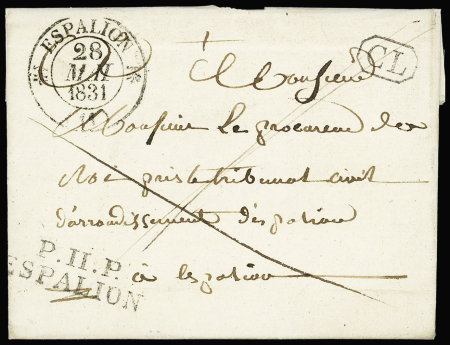 ESPALION
28
MAI
1831
(11)
CL
à Monsieur
Monsieur Le procureur du
Roi près le tribunal civil
d'arrondissement d'Espalion
à Espalion
P.II.P.
ESPALION